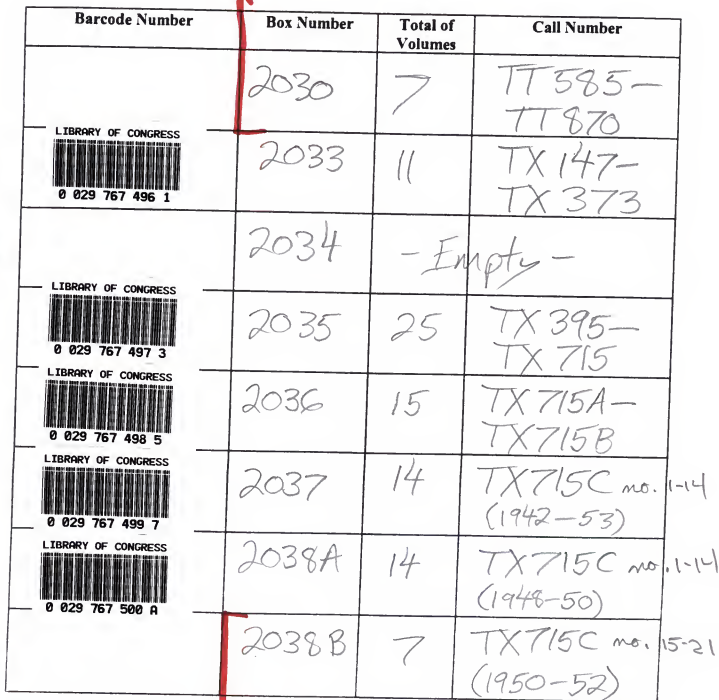 Barcode Number Box Number Total of Volumes Call Number
2030 7 TT 585–
TT 870
LIBRARY OF CONGRESS
0 029 767 496 1
2033 11 TX 147–
TX 373
2034 - Empty -
LIBRARY OF CONGRESS
0 029 767 497 3
2035 25 TX 395–
TX 715
LIBRARY OF CONGRESS
0 029 767 498 5
2036 15 TX 715A–
TX715B
LIBRARY OF CONGRESS
0 029 767 499 7
2037 14 TX715C no. 1-14
(1942–53)
LIBRARY OF CONGRESS
0 029 767 500 A
2038A 14 TX715C no. 1-14
(1948-50)
2038B 7 TX715C no. 15-21
(1950-52)